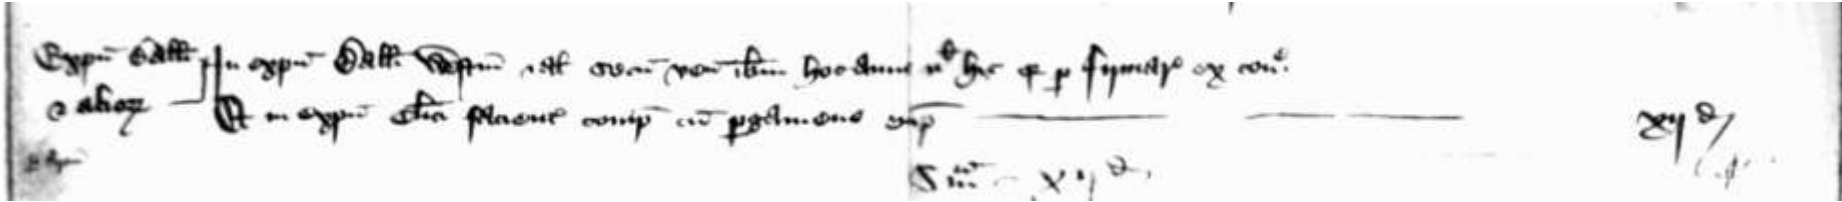 Expn̄ Ball̄i In expn̄ Ball̄i Westm̄ & al̄ secū ven̄ ib̄m hoc anno n^l hic q^r p firmar^e ex con^e.
& alioꝝ Et in expn̄ cl̄ici facient^e comp̄ cū pergameno empt̄ xij d
Sm̄ª xij d